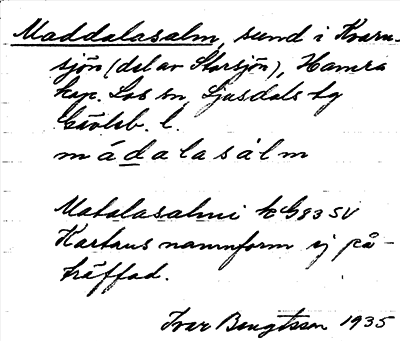 Maddalasalm, sund i Kvarn-
sjön (del av Storsjön), Hamra
kap. Los sn, Ljusdals tg
Gävleb. l.
mádalasálm
Matalasalmi k G83 SV
Kartans namnform ej på-
träffad.
Ivar Bengtsson 1935